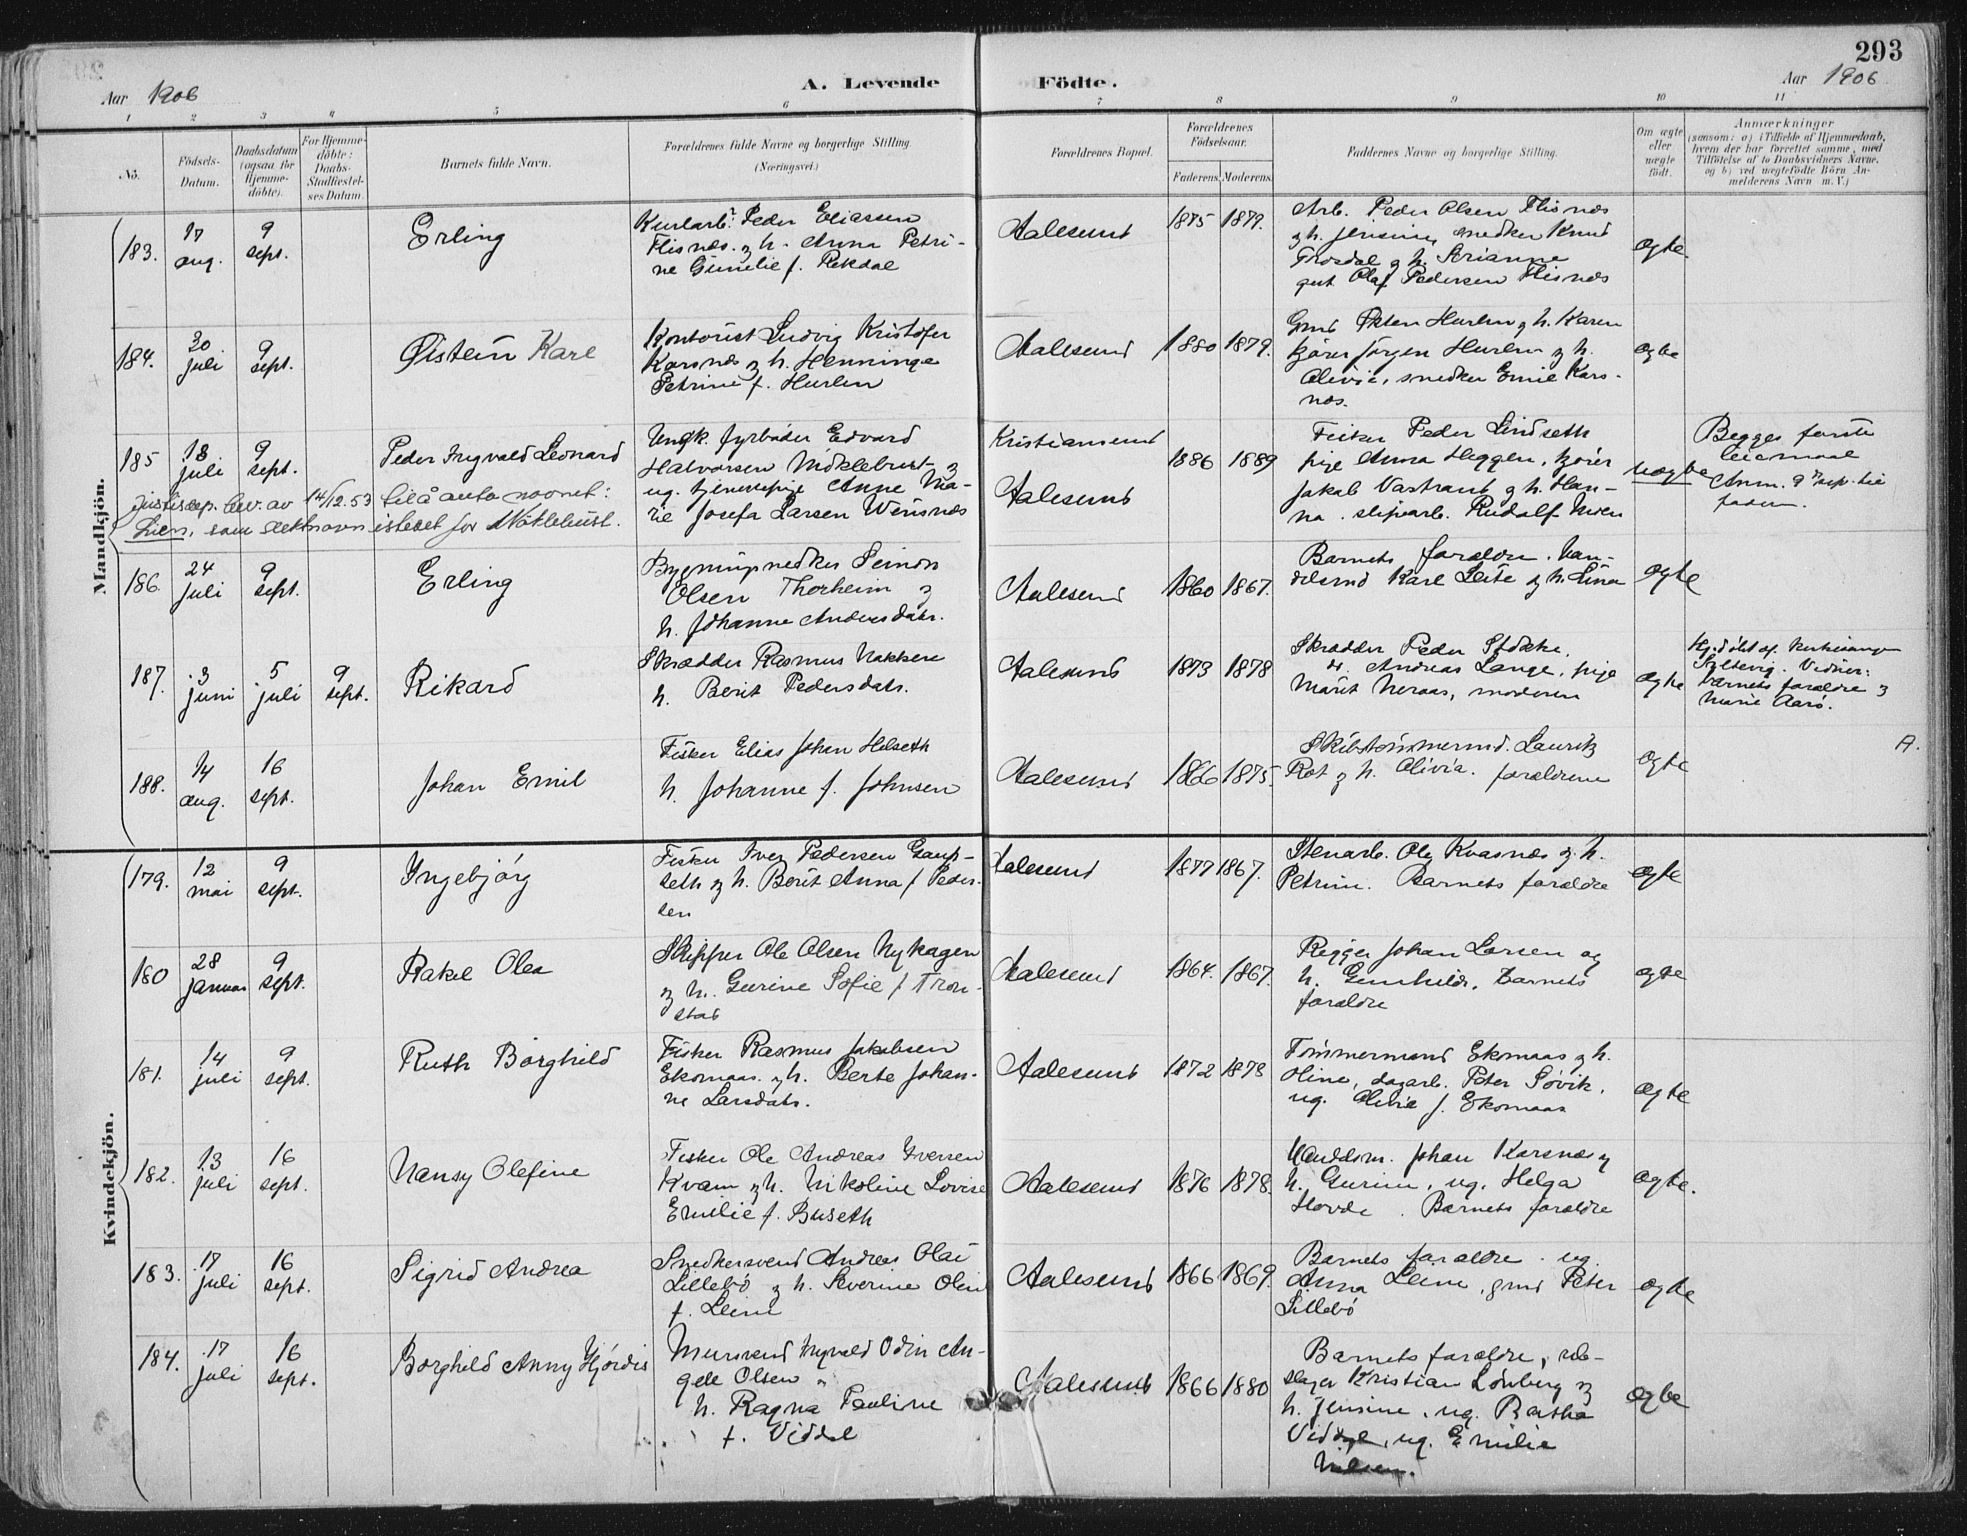 293
Aar 1906
A. Levende Födte.
Aar 1906
1 2 3 4 5 6 7 8 9 10 11
No.
Födsels-
Datum.
Daabsdatum
(ogsaa for
Hjemme-
döbte).
For Hjemme-
döbte:
Daabs-
Stadfæstel-
ses Datum.
Barnets fulde Navn.
Forældrenes fulde Navne og borgerlige Stilling.
(Næringsvei.)
Forældrenes Bopæl.
Forældrenes
Födselsaar.
Faderens. Moderens.
Faddernes Navne og borgerlige Stilling.
Om ægte
eller
uægte
födt.
Anmærkninger
(saasom: a) i Tilfælde af Hjemmedaab,
hvem der har forrettet samme, med
Tilföielse af to Daabsvidners Navne,
og b) ved uægtefödte Börn An-
melderens Navn m. V.)
Mandkjön.
183.
17
aug.
9
sept.
Erling
Peder Eliassen
Flisnæs. og h. Anna Petri-
ne f. Rekdal
Aalesund
1875 1879.
Arb. Peder Olsen Flisnæs
og h. Jensine, snedker Knud
og h.
gut Olaf Pedersen Flisnæs
ægte.
184.
30
juli
9
sept.
Øistein Karl
Kontorist Ludvig Kristofer
Karsnæs og h. Henninge
Petrine f. Hurlen
Aalesund
1880 1879.
Gmd Østen Hurlen og h. Karen
kjører Jørgen Hurlen og h.
Olivie, snedker Emil Kars-
næs.
ægte
185
13
juli
9
sept.
Peder Ingvald Leonard
Ungk. fyrbøder Edvard
Halvorsen Nøklebust og
ug. tjenestepige Anne Ma-
rie Josefa Larsen
Kristiansund
Aalesund
1886 1889
Fisker Peder Lindseth
pige Anna Heggen, kjører
Jakob Vastrand og h. Han-
na. Rudolf Moen
uægte
Begges første
leiermaal
Anm. 9 sep. til
Justisdep. bev. av 14/12.53 til å anta navnet:
Lien, som slektsnavn istedet for Nøklebust.
186.
24
juli
9
sept.
Erling
Bygningssnedker Seindn
Olsen Thorheim og
h. Johanne Andersdatr.
Aalesund
1860 1867.
Barnets forældre. Han-
delsmd Karl Leite og h. Lina
ægte
187.
3
juni
5
juli
9
sept.
Rikard
Skrædder Rasmus Nakken
h. Berit Pedersdatr.
Aalesund
1873 1878
Skrædder Peder Stokke,
ds. Andreas Lange, pige
Marit Neraas, moderen
ægte
Hj.døbt af
Syltevig. Vidner:
barnets forældre og
Marie Aarø.
188.
14
aug.
16
sept.
Johan Emil
Fisker Elias Johan Helseth
h. Johanne f. Johnsen
Aalesund
1866 1875.
Skibstømmermd. Lauritz
Rot og h. Olivia. forældrene
ægte
A.
Kvindekjön.
179.
12
mai
9
sept.
Ingebjørg
Fisker Iver Pedersen Gaup-
seth og h. Berit Anna f. Peder-
sen
Aalesund
1877 1867.
Stenarb. Ole Kvasnæs og h.
Petrine. Barnets forældre
ægte
180
28
januar
9
sept.
Rakel Olea
Skipper Ole Olsen Nykagen
og h. Gurine Sofie f. Tron-
stad
Aalesund
1864. 1867.
Rigger Johan Larsen og
h. Gunhild. Barnets
forældre
ægte
181.
14
juli
9
sept.
Ruth Borghild
Fisker Rasmus Jakobsen
Ekornaas. og h. Berte Johan-
ne Larsdatr.
Aalesund
1872 1873
Tømmermand Ekornaas og h.
Oline, dagarb. Peter Søvik,
ug. Olivie f. Ekornaas
ægte
182.
13
juli
16
sept.
Nansy Olefine
Fisker Ole Andreas Iversen
Kvam og h. Nikoline Lovise
Emilie f. Buseth
Aalesund
1876 1878.
Johan Karsnæs og
h. Gurine, ug. Helga
Hovde. Barnets forældre
ægte.
183.
17
juli
16
sept.
Sigrid Andrea
Snedkersvend Andreas Olai
Lillebø og h. Severine Oline
f. Leine
Aalesund
1866 1869.
Barnets forældre. ug.
Anna Leine, gmd Peter
Lillebø
ægte
184.
17
juli
16
sept.
Borghild Anny Hjørdis
Mursvend Ingvald Odin An-
gell Olsen
h. Ragna Pauline
f. Viddal
Aalesund
1866 1880
Barnets forældre, reb-
slager Kristian Lønberg og
h. Jensine, ug. Bartha
Viddal, ug. Emilie
Nilsen.
ægte